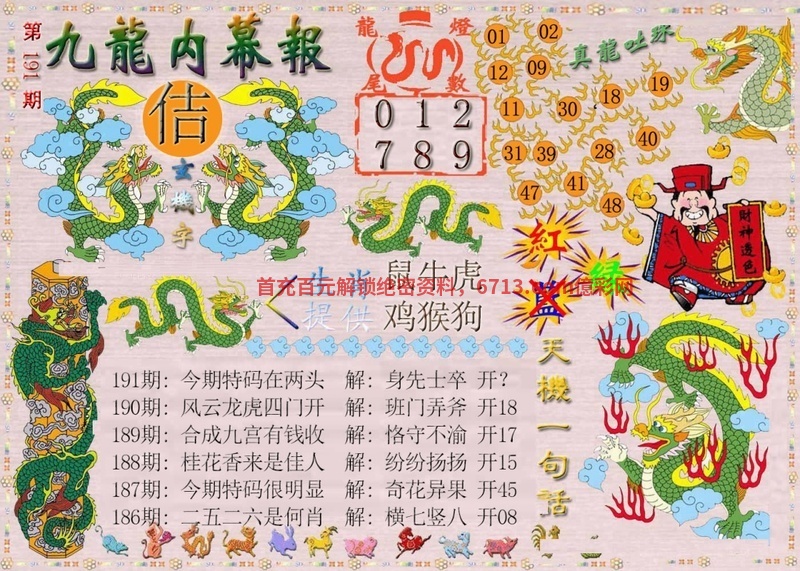 第191期
九龍内幕報
佶
玄機字
龍燈
尾數
0 1 2
7 8 9
真龍吐珠
01 02
12 09
11 30 18 19
31 39 28 40
47 41 48
紅 绿
财神透色
生肖 鼠牛虎
提供 鸡猴狗
首充百元解锁绝密资料，6713
億彩网
191期: 今期特码在两头 解: 身先士卒 开?
190期: 风云龙虎四门开 解: 班门弄斧 开18
189期: 合成九宫有钱收 解: 恪守不渝 开17
188期: 桂花香来是佳人 解: 纷纷扬扬 开15
187期: 今期特码很明显 解: 奇花异果 开45
186期: 二五二六是何肖 解: 横七竖八 开08
天機一句話